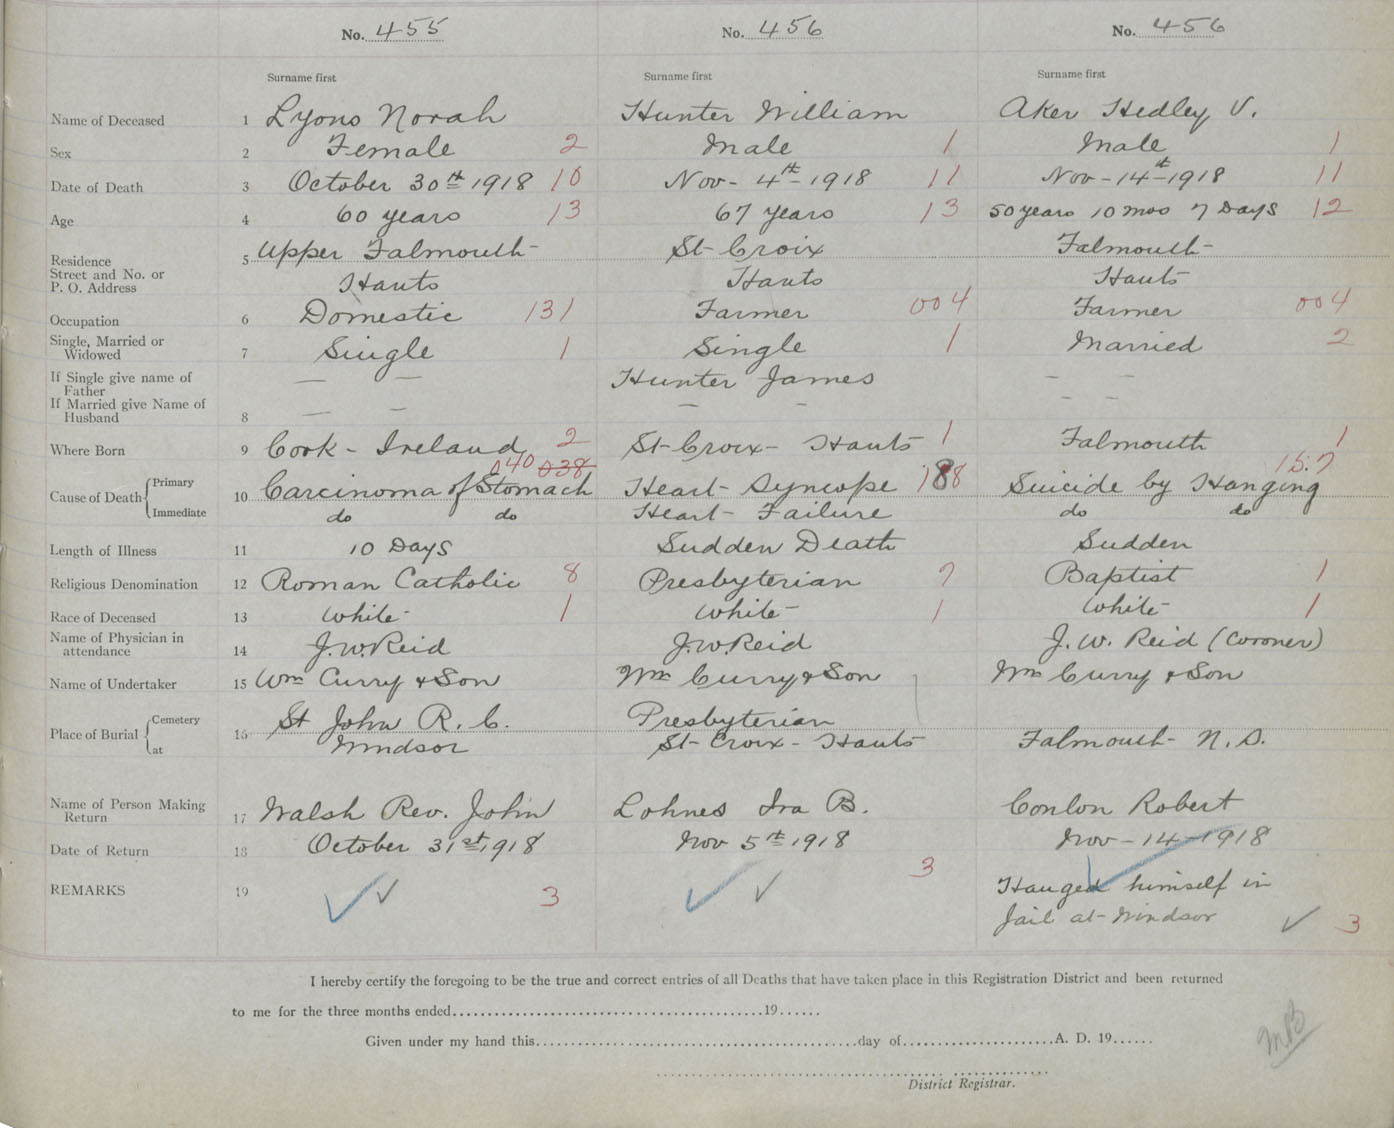 No. 455 No. 456 No. 456
Surname first Surname first Surname first
Name of Deceased 1 Lyons Norah Hunter William Aker Hedley V.
Sex 2 Female 2 Male 1 Male 1
Date of Death 3 October 30th 1918 10 Nov - 4th - 1918 11 Nov - 14th - 1918 11
Age 4 60 years 13 67 years 13 50 years 10 mos 7 Days 12
Residence 5 Upper Falmouth St Croix Falmouth
Street and No. or
P. O. Address Hants Hants Hants
Occupation 6 Domestic 131 Farmer 004 Farmer 004
Single, Married or
Widowed 7 Single 1 Single 1 Married 2
If Single give name of
Father — — Hunter James — —
If Married give Name of
Husband 8 — — — — — —
Where Born 9 Cork - Ireland 2 St Croix - Hants 1 Falmouth 1
040 038 157
Cause of Death Primary 10 Carcinoma of Stomach Heart Syncope 188 Suicide by Hanging
Immediate do do Heart Failure do do
Length of Illness 11 10 Days Sudden Death Sudden
Religious Denomination 12 Roman Catholic 8 Presbyterian 7 Baptist 1
Race of Deceased 13 White 1 White 1 White 1
Name of Physician in
attendance 14 J. W. Reid J. W. Reid J. W. Reid (Coroner)
Name of Undertaker 15 Wm Curry & Son Wm Curry & Son Wm Curry & Son
Place of Burial Cemetery 16 St John R. C. Presbyterian
at Windsor St Croix - Hants Falmouth N. S.
Name of Person Making
Return 17 Walsh Rev. John Lohnes Ira B. Conlon Robert
Date of Return 18 October 31st 1918 Nov 5th 1918 Nov - 14 - 1918
REMARKS 19 ✓ ✓ 3 ✓ ✓ 3 Hanged himself in
Jail at Windsor ✓ 3
I hereby certify the foregoing to be the true and correct entries of all Deaths that have taken place in this Registration District and been returned
to me for the three months ended..........19......
Given under my hand this..........day of..........A. D. 19......
MB
District Registrar.